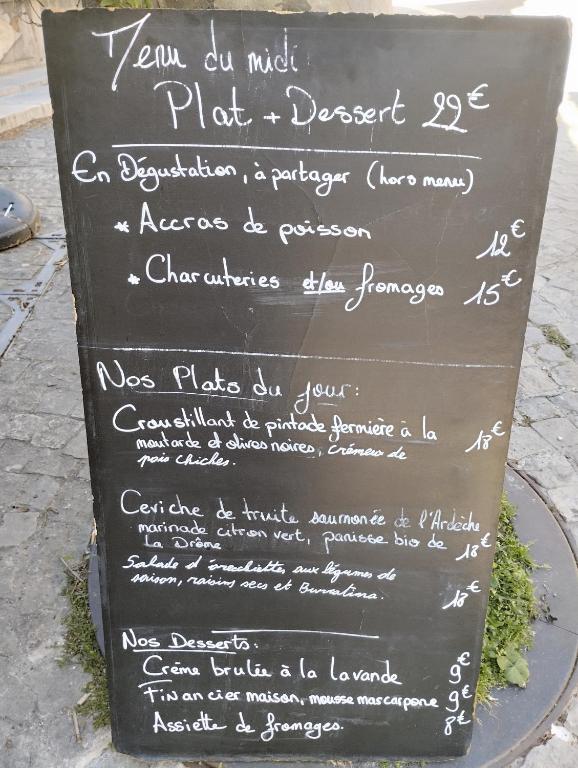 Menu du midi
Plat + Dessert 22€
En Dégustation, à partager (hors menu)
* Accras de poisson 12€
* Charcuteries et/ou fromages 15€
Nos Plats du jour:
Croustillant de pintade fermière à la
moutarde et olives noires, crémeux de 18€
pois chiches.
Ceviche de truite saumonée de l'Ardèche
marinade citron vert, panisse bio de
La Drôme 18€
Salade d'orechiettes aux légumes de
saison, raisins secs et Burratina. 18€
Nos Desserts:
Crème brulée à la lavande 9€
Financier maison, mousse mascarpone 9€
Assiette de fromages. 8€